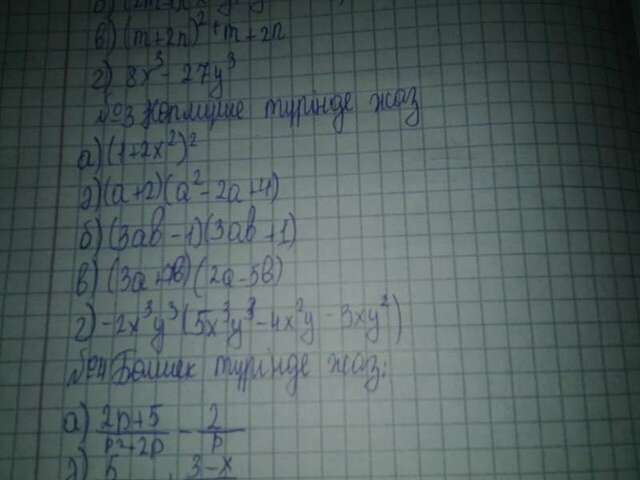 в) (m+2n)² + m + 2n
г) 8x³ - 27y³
№3 Көпмүше түрінде жаз
а) (1+2x²)²
ә) (a+2)(a²-2a+4)
б) (3ab-1)(3ab+1)
в) (3a+ b)(2a-5b)
г) -2x³y³(5x³y³-4x²y-3xy²)
№4 Бөлшек түрінде жаз:
а) 2p+5/p²+2p - 2/p
ә) 5 3-x